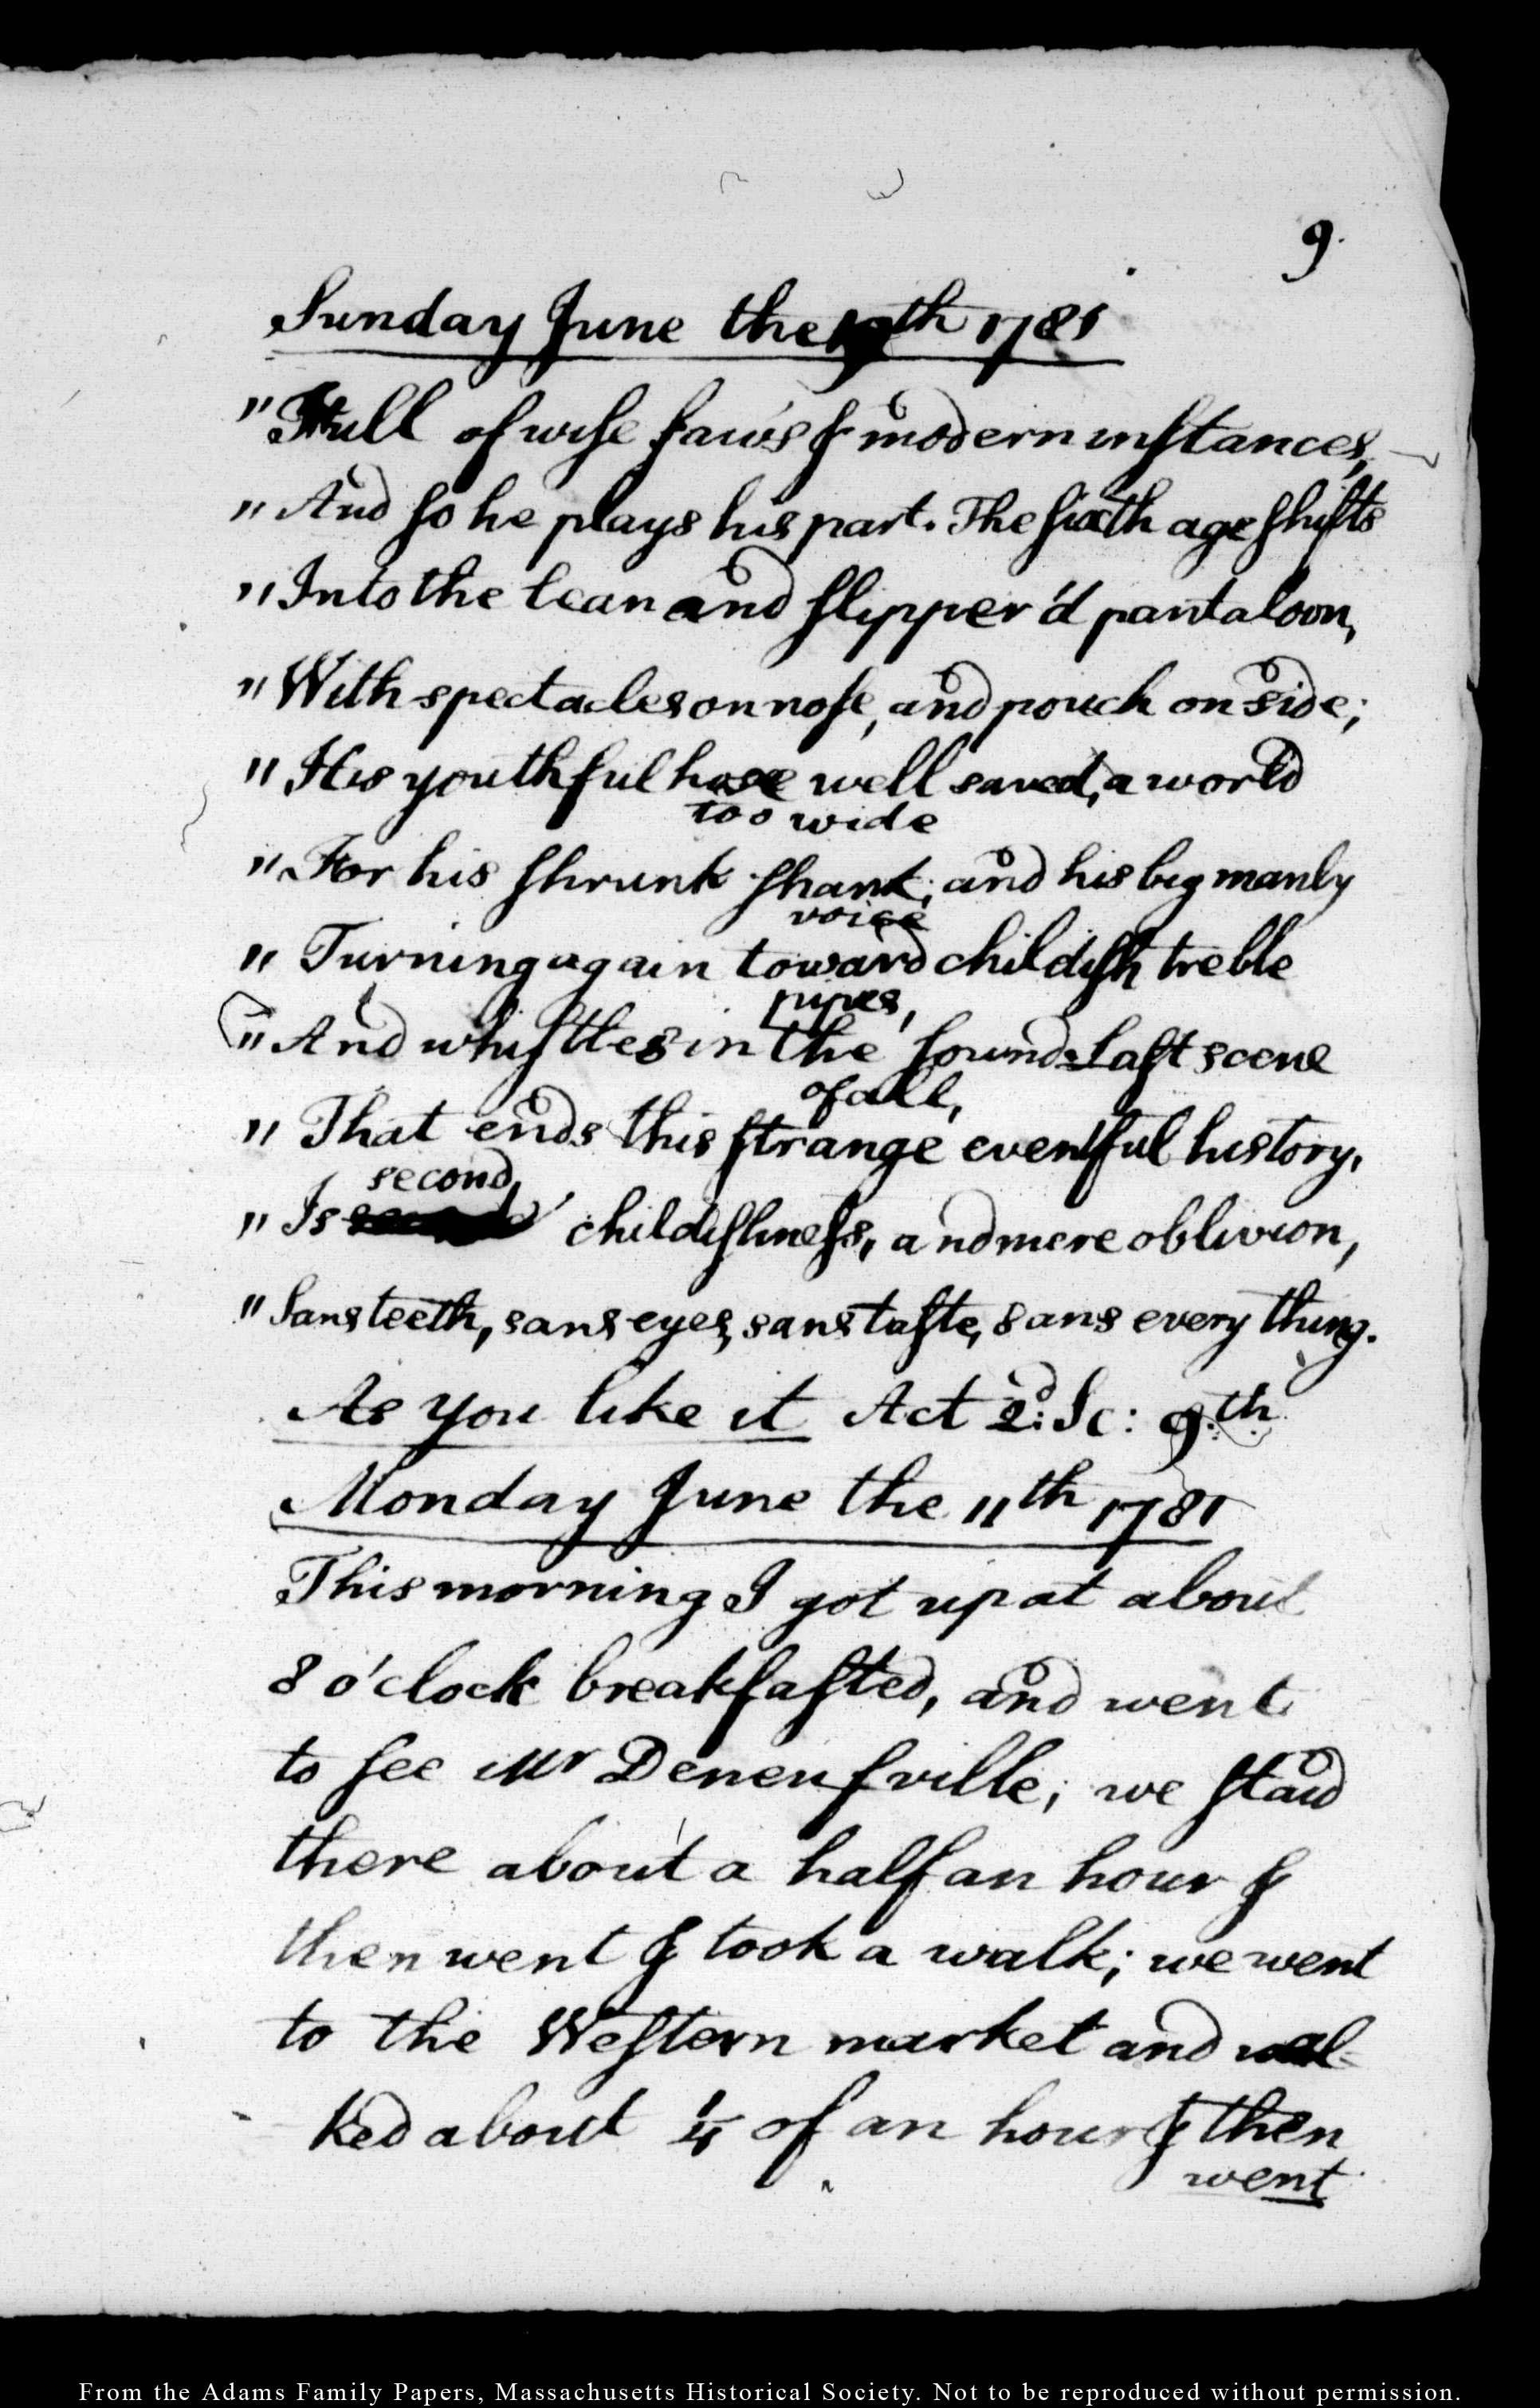 9.
Sunday June the 10th 1781
"Full of wise saws & modern instances,
"And so he plays his part. The sixth age shifts
"Into the lean and slipper'd pantaloon,
"With spectacles on nose, and pouch on side;
"His youthful hose well saved, a world
too wide
"For his shrunk shank; and his big manly
voice
"Turning again toward childish treble
pipes,
"And whistles in the sound. Last scene
of all,
"That ends this strange eventful history,
second
"Is childishness, and mere oblivion,
"Sans teeth, sans eyes, sans taste, sans every thing.
As you like it Act 2d: Sc: 9.th
Monday June the 11th 1781
This morning I got up at about
8 o'clock breakfasted, and went
to see Mr Deneufville; we staid
there about a half an hour &
then went & took a walk; we went
to the Western market and wal-
ked about ¼ of an hour & then
went
From the Adams Family Papers, Massachusetts Historical Society. Not to be reproduced without permission.